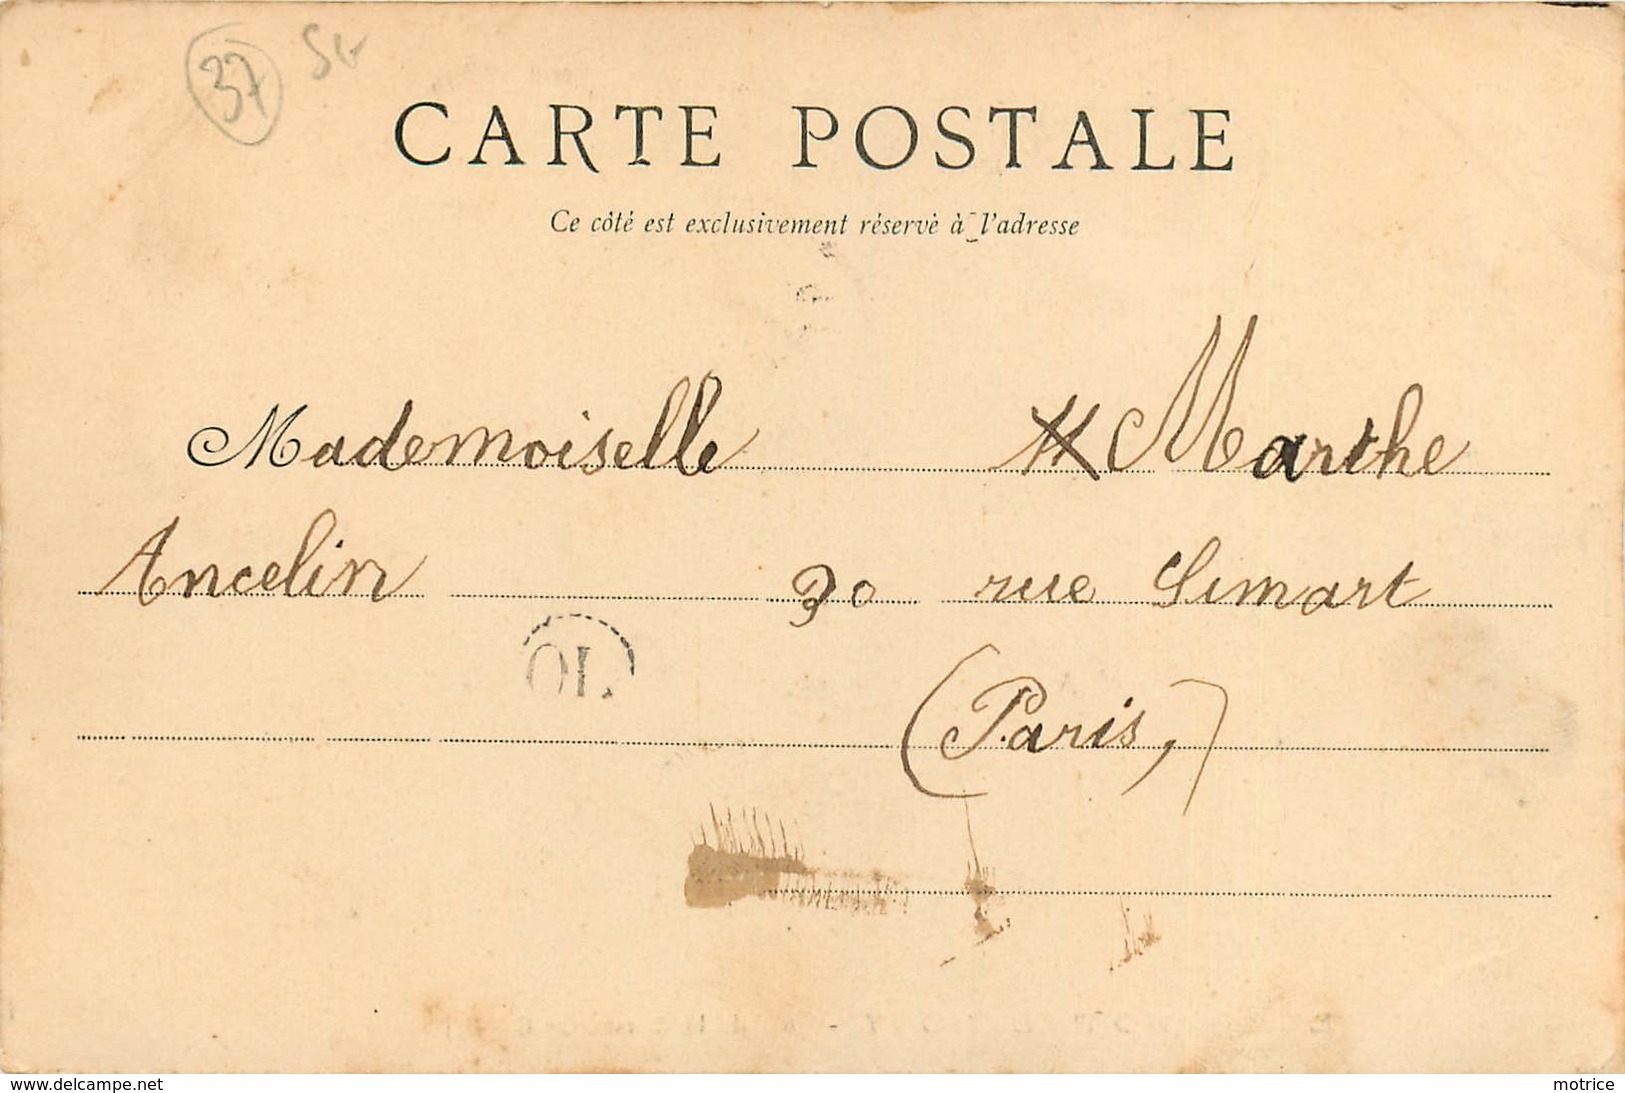 37
CARTE POSTALE
Ce côté est exclusivement réservé à l'adresse
Mademoiselle Marthe
Ancelin 30 rue Simart
(Paris,)
www.delcampe.net
motrice